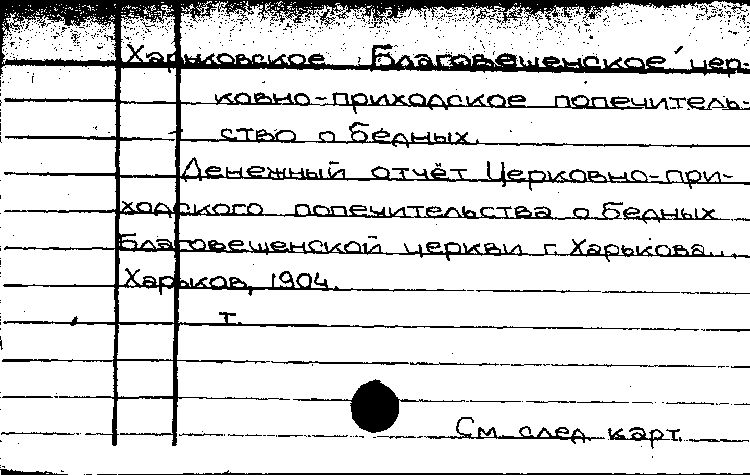 Харьковское Благовещенское цер-
ковно-приходское попечитель-
ство о бедных.
Денежный отчёт Церковно-при-
ходского попечительства о бедных
Благовещенской церкви г. Харькова...
Харьков, 1904.
т.
См. след. карт.